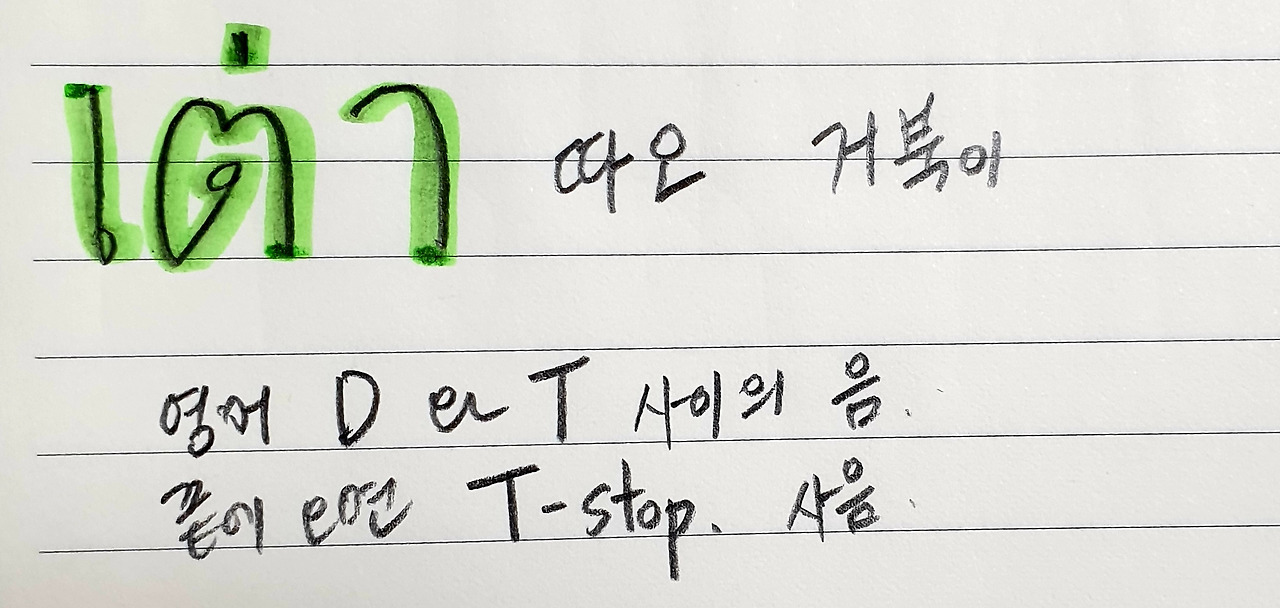 เต่า 따오 거북이
영어 D 와 T 사이의 음.
끝에 오면 T-stop. 사음.